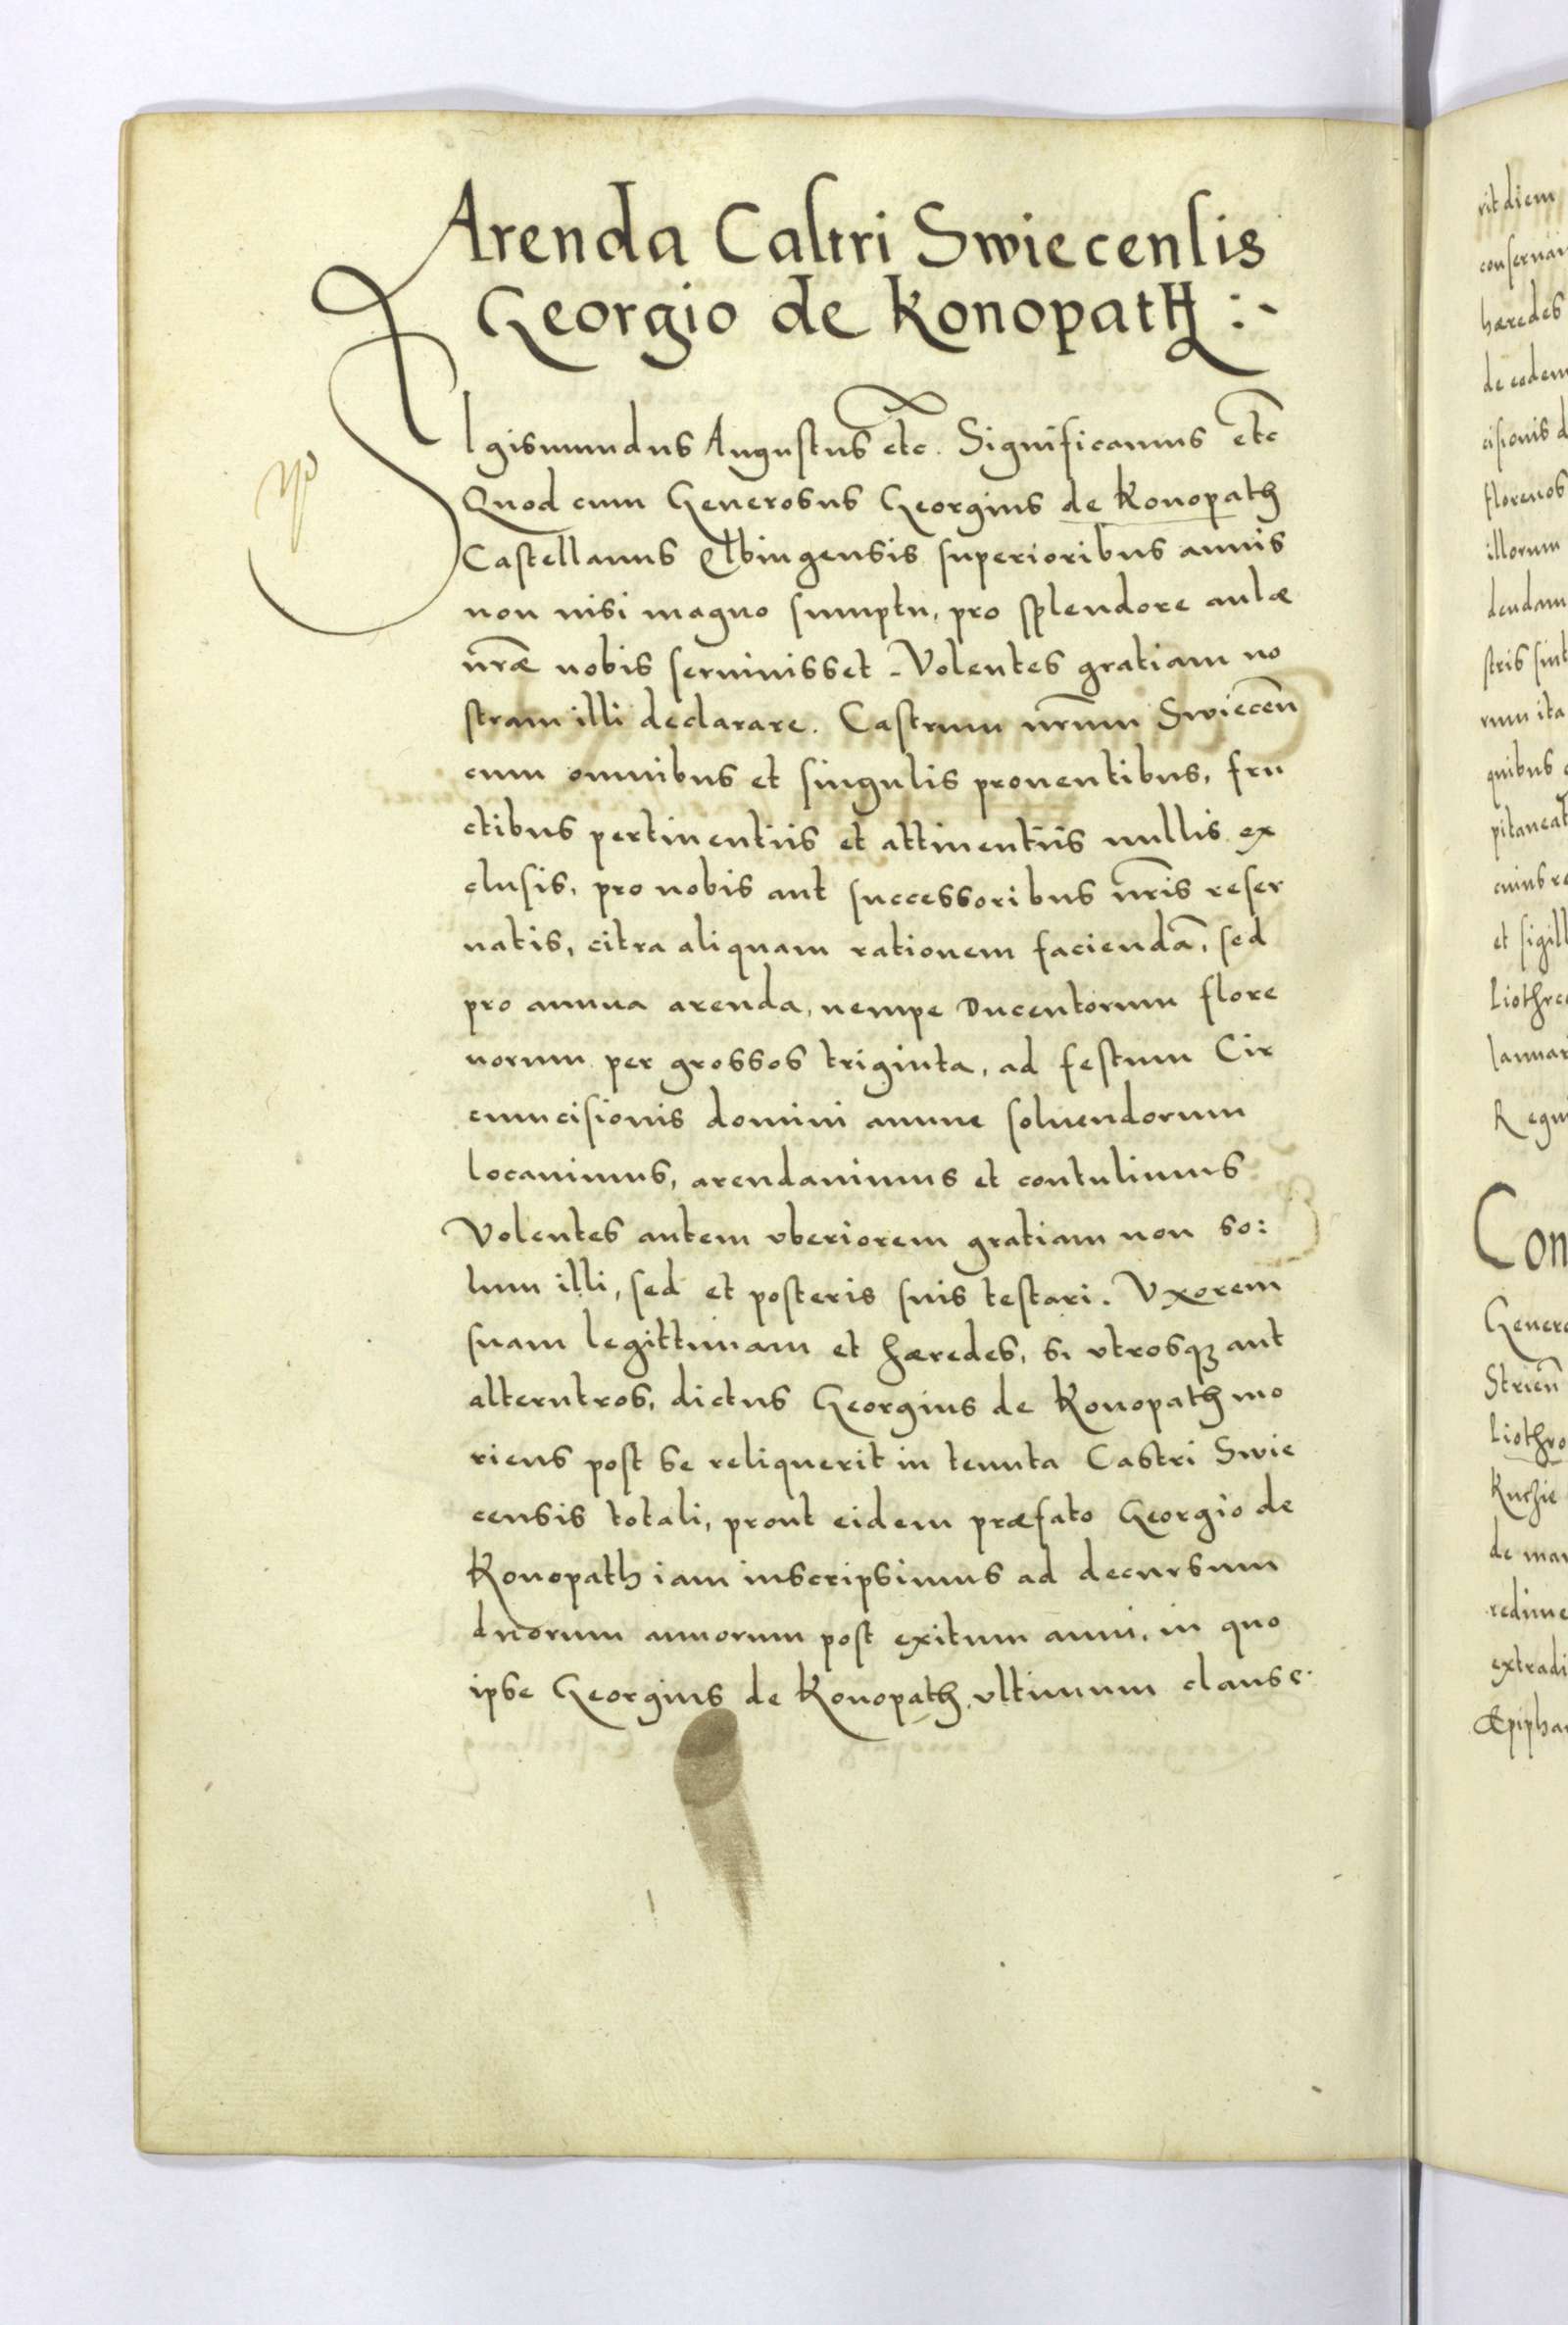 Arenda Castri Swiecensis
Georgio de Konopath :-
SIgismundus Augustus etc. Significamus etc
Quod cum Generosus Georgius de Konopath
Castellanus Elbingensis superioribus annis
non nisi magno sumptu, pro splendore aulæ
nr̃æ nobis seruiuisset. Volentes gratiam no
stram illi declarare. Castrum nr̃um Swieceñ
cum omnibus et singulis prouentibus, fru
ctibus pertinentiis et attinentiis nullis ex
clusis, pro nobis aut successoribus nr̃is reser
uatis, citra aliquam rationem faciendã, sed
pro annua arenda, nempe Ducentorum flore
norum per grossos triginta, ad festum Cir
cumcisionis domini annue soluendorum
locauimus, arendauimus et contulimus
Volentes autem vberiorem gratiam non so:
lum illi, sed et posteris suis testari. Vxorem
suam legittimam et hæredes, si vtrosqꝫ aut
alterutros, dictus Georgius de Konopath mo
riens post se reliquerit in tenuta Castri Swie
censis totali, prout eidem præfato Georgio de
Konopath iam inscripsimus ad decursum
duorum annorum post exitum anni, in quo
ipse Georgius de Konopath vltimum clause
rit diem
hæredes
de eodem
cisionis d
florenos
illorum
dendam
stris sint
rum ita
quibus
pitaneat
cuius re
et sigill
Ianuar
Regni
Con
Genero
Strieñ
de mar
redime
extradi
Epipha